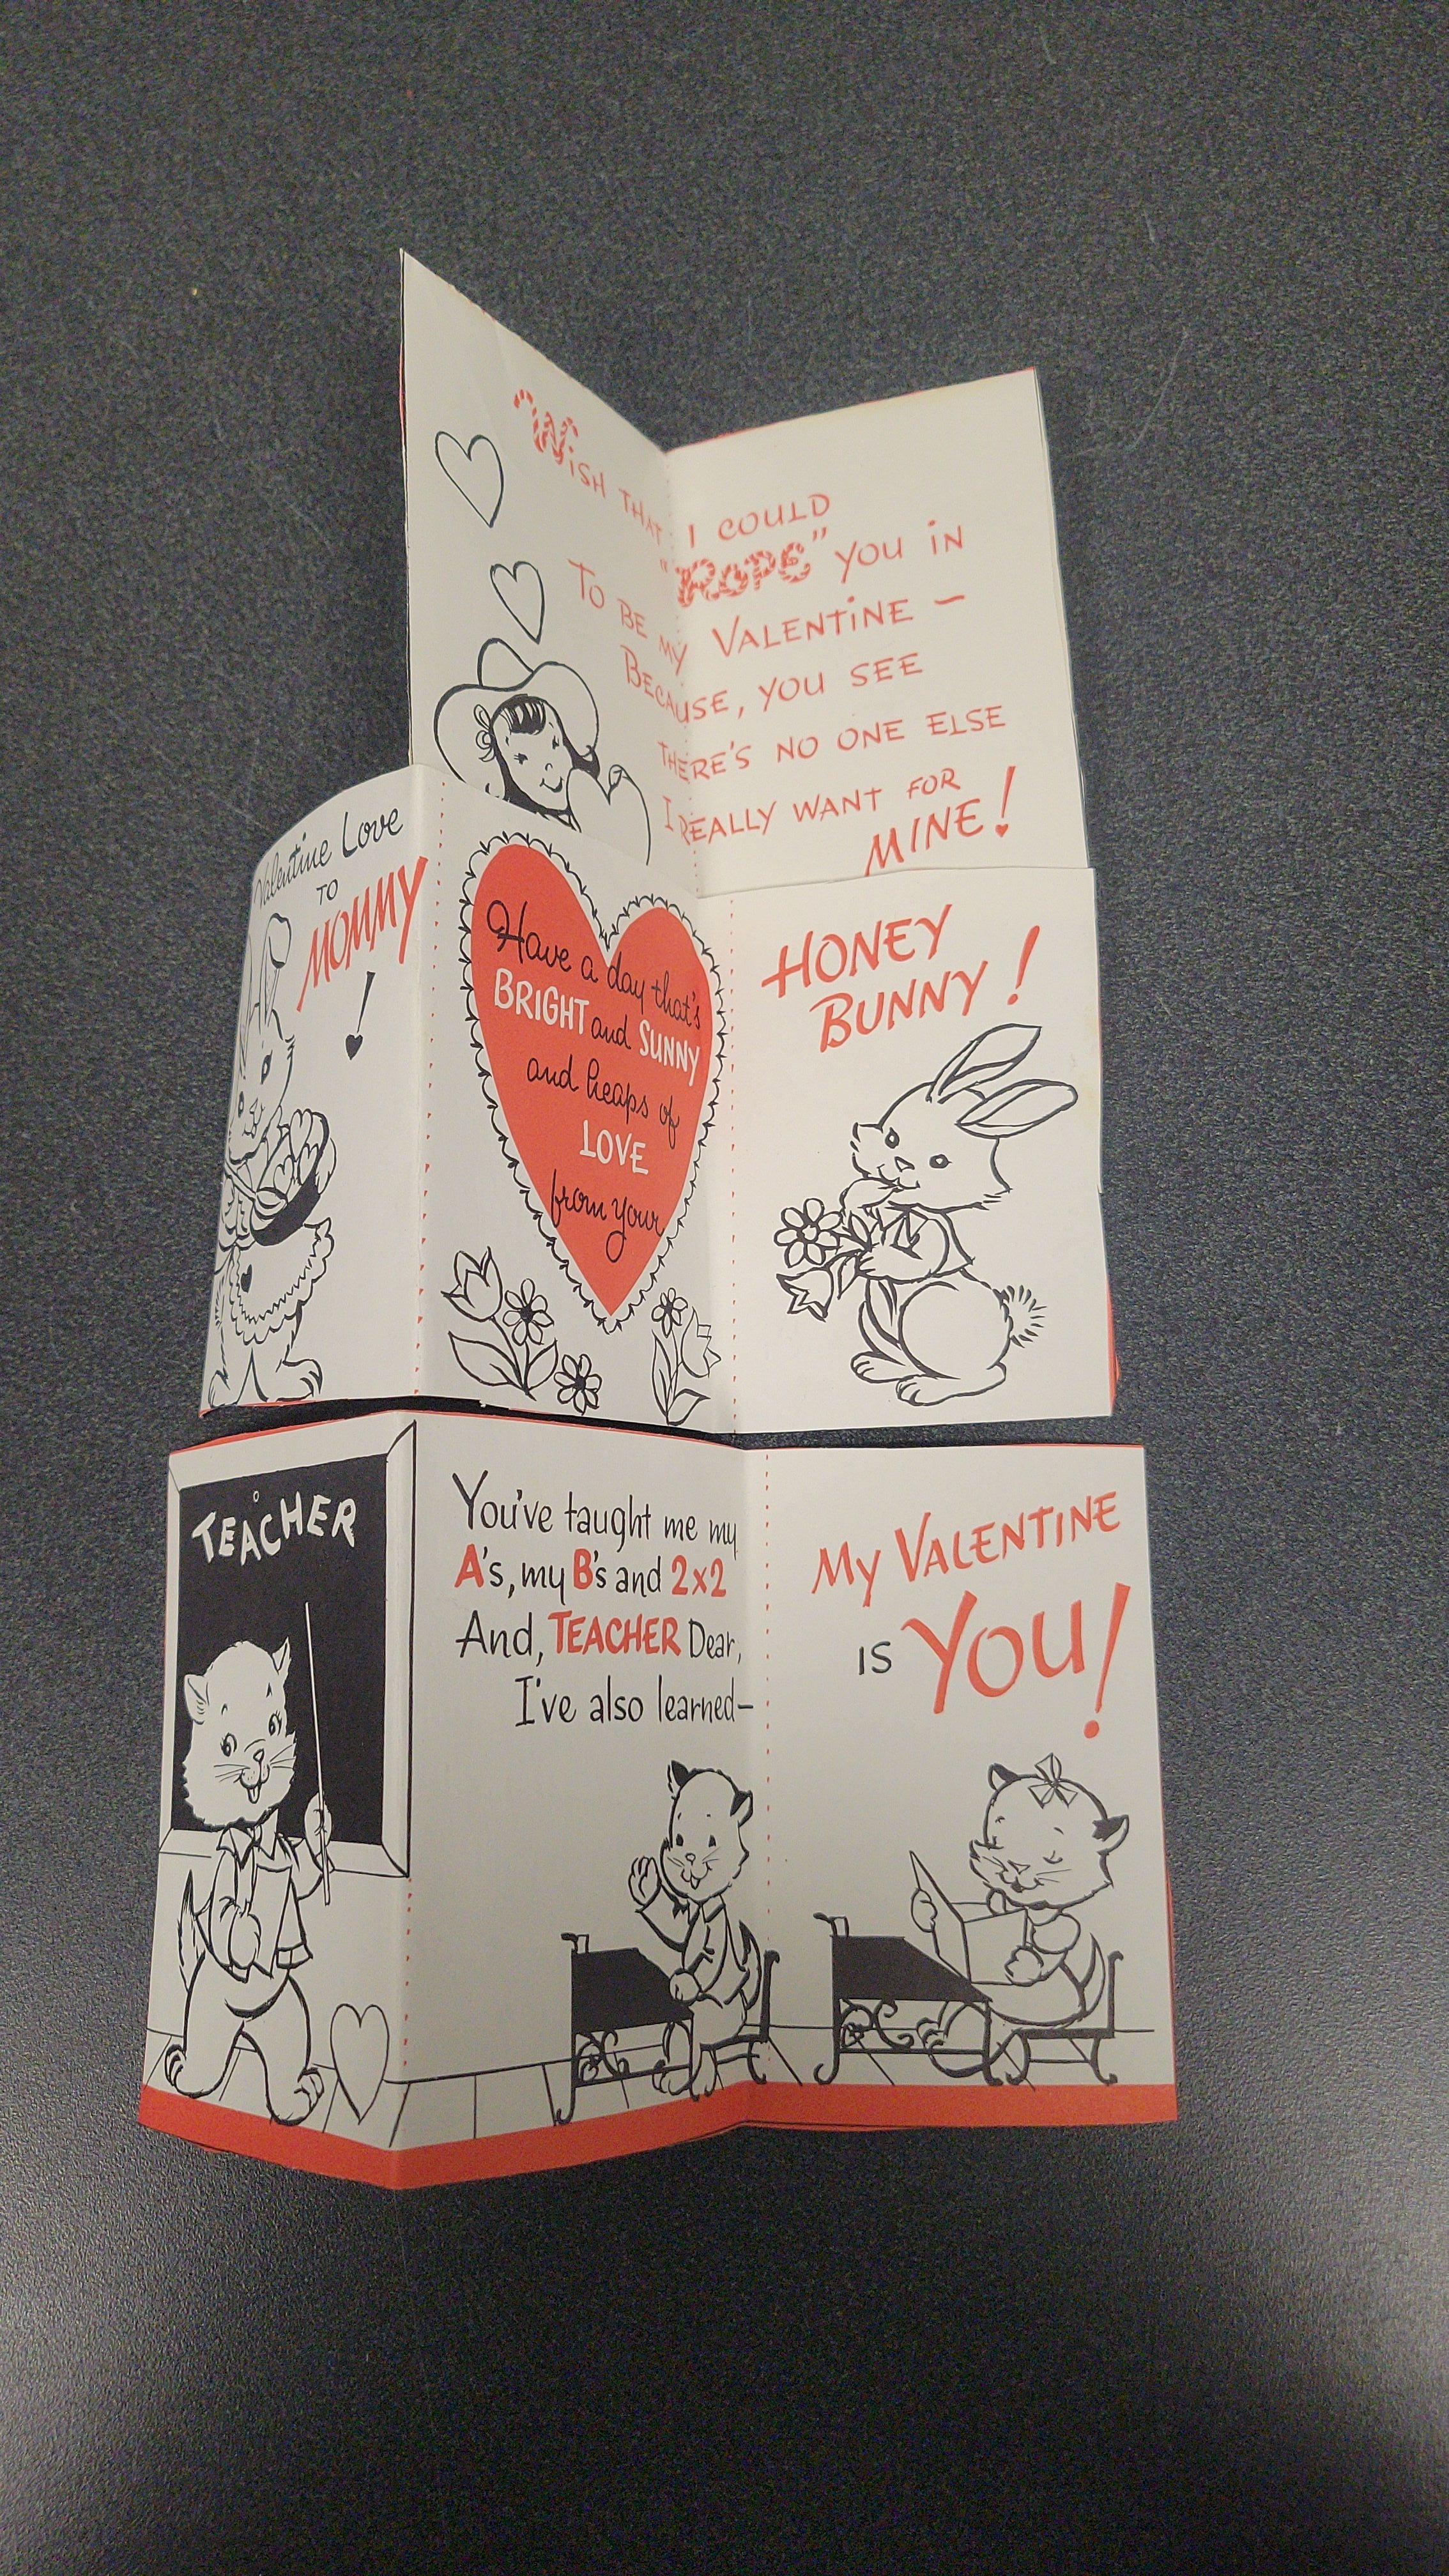 Wish that I could
"Rope" you in
To be my Valentine –
Because, you see
there's no one else
I really want for
mine!
Valentine Love
to
Mommy
!
Have a day that's
BRIGHT and SUNNY
and heaps of
LOVE
from your
HONEY
BUNNY!
TEACHER
You've taught me my
A's, my B's and 2x2
And, TEACHER Dear,
I've also learned–
My VALENTINE
IS YOU!